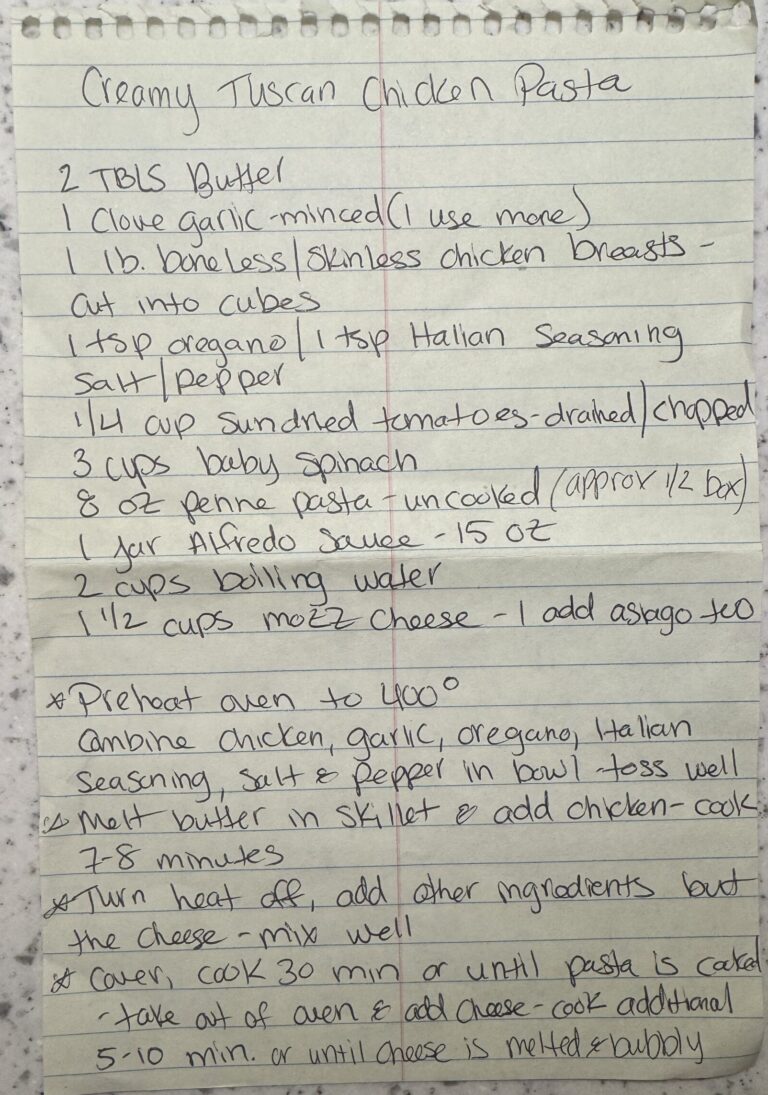 Creamy Tuscan Chicken Pasta
2 TBLS Butter
1 Clove garlic-minced (I use more)
1 lb. boneless/skinless chicken breasts-
cut into cubes
1 tsp oregano/1 tsp Italian Seasoning
Salt/pepper
1/4 cup sundried tomatoes-drained/chopped
3 cups baby spinach
8 oz penne pasta-uncooked (approx 1/2 box)
1 jar Alfredo Sauce-15 oz
2 cups boiling water
1 1/2 cups mozz cheese-I add asiago too
*Preheat oven to 400°
Combine chicken, garlic, oregano, Italian
Seasoning, salt & pepper in bowl-toss well
*Melt butter in skillet & add chicken-cook
7-8 minutes
*Turn heat off, add other ingredients but
the cheese-mix well
*Cover, cook 30 min or until pasta is cooked
-take out of oven & add cheese-cook additional
5-10 min. or until cheese is melted & bubbly